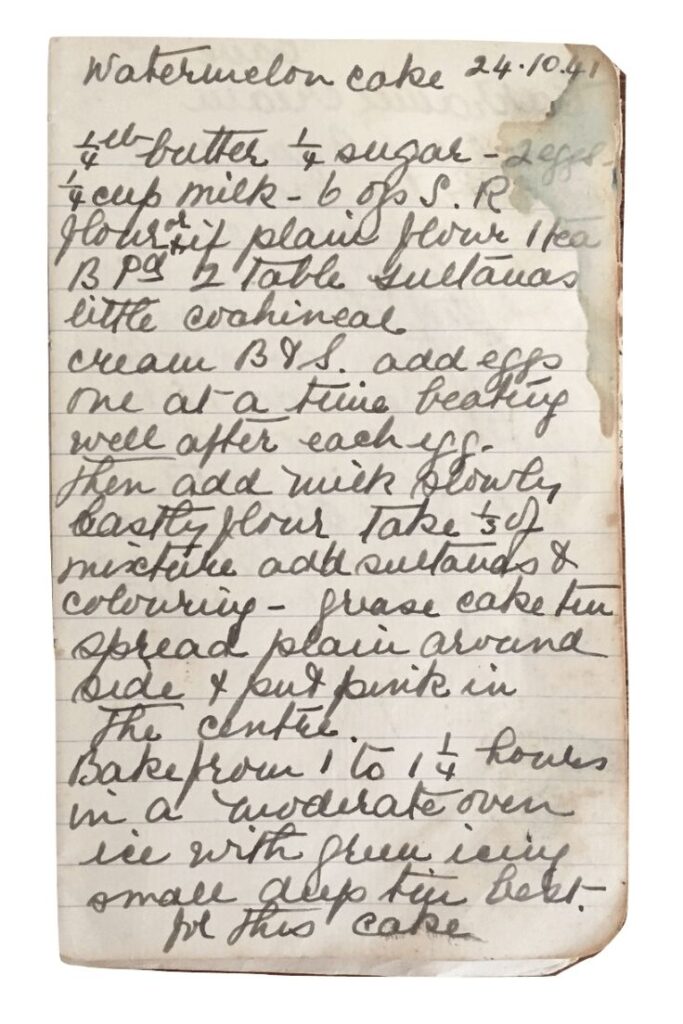 Watermelon cake 24.10.41
¼ lb butter ¼ sugar - 2 eggs -
¼ cup milk - 6 ozs S. R
flour or if plain flour 1 tea
B Pd 2 Table sultanas
little coahineal
cream B & S. add eggs
one at a time beating
well after each egg.
Then add milk slowly
lastly flour Take ⅓ of
mixture add sultanas &
colouring - grease cake tin
spread plain around
side & put pink in
the centre.
Bake from 1 to 1 ¼ hours
in a moderate oven
ice with green icing
small deep tin best.
for this cake